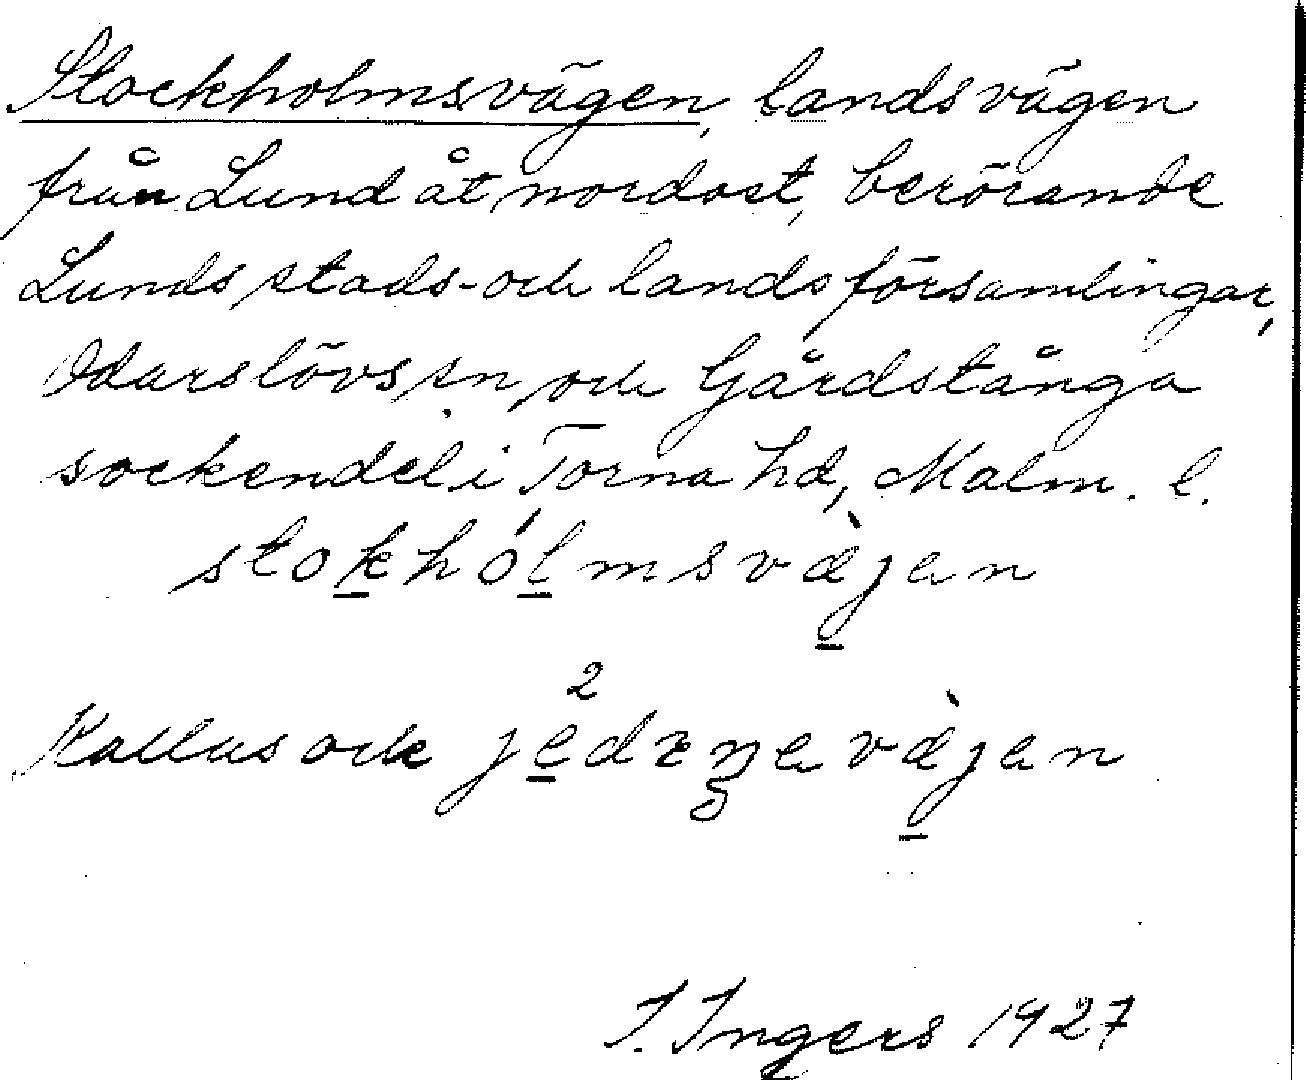 Stockholmsvägen, landsvägen
från Lund åt nordost, berörande
Lunds stads- och landsförsamlingar,
Odarslövs sn, och Gårdstånga
sockendel i Torna hd, Malm. l.
stokhólmsvæ̀jen
Kallas ock
I. Ingers 1927